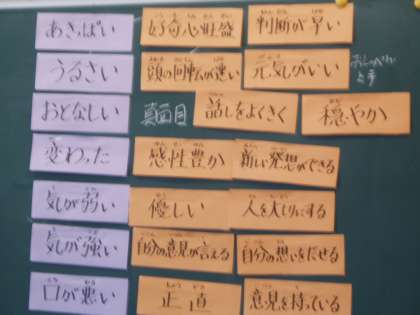 あきっぽい 好奇心旺盛 判断が早い
うるさい 頭の回転が速い 元気がいい
おとなしい 真面目 話しをよくきく 穏やか
変わった 感性豊か 新しい発想ができる
気が弱い 優しい 人を大切にする
気が強い 自分の意見が言える 自分の思いをだせる
口が悪い 正直 意見を持っている